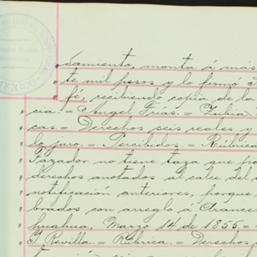 samiento, monta á más
te mil pesos y lo firmó
fé, recibiendo copia de la
cia. = Angel Frías. = Zubia
cas. = Derechos seis reales y
lo juro. = Percibidos. = Rúbrica
Tazador no tiene taza que po
derechos anotados al calce del
notificación anteriores, porque
brados con arreglo á Arance
huahua, Marzo 14 de 1855. =
J. Revilla. = Rúbrica. = Derechos